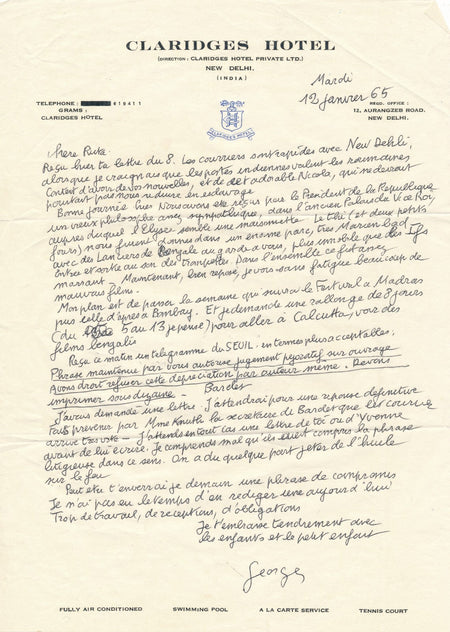 CLARIDGES HOTEL
(DIRECTION: CLARIDGES HOTEL PRIVATE LTD.)
NEW DELHI.
(INDIA)
Mardi
12 janvier 65
TELEPHONE: 619411
GRAMS:
CLARIDGES HOTEL
REGD. OFFICE:
12, AURANGZEB ROAD,
NEW DELHI.
CLARIDGES HOTEL
chere Ruta
Reçu hier ta lettre du 8. Les courriers sont rapides avec New Dehli,
alors que je craignais que les postes indiennes valent les roumaines
Content d'avoir de vos nouvelles, et de cet adorable Nicola, qui ne devrait
pourtant pas vous reduire en esclavage
Bonne journée hier. Nous avons été reçus par le President de la Republique
un vieux philosophe assez sympathique, dans l'ancien Palais du Vice Roi,
aupres duquel l'Elysée semble une maisonnette. Le thé (et deux petits
fours) nous furent donnés dans son enorme parc, très Marienbad
avec des Lanciers de Bengale au garde à vous, plus immobiles que des Ifs
Entrée et sortie au son des trompettes. Dans l'ensemble ce fut assez
marrant. Maintenant, bien reposé, je vois sans fatigue beaucoup de
mauvais films.
Mon plan est de passer la semaine qui suivra le Festival à Madras
puis celle d'après à Bombay. Et je demande une rallonge de 8 jours
(du 5 au 13 je pense) pour aller à Calcutta, voir des
films bengalis
Reçu ce matin un telegramme du SEUIL, en termes plus acceptables.
Phrase maintenue par vous autorise jugement pejoratif sur ouvrage
Avons droit refuser cette depreciation par auteur même. Devons
imprimer sous dizaine - Bardet
J'avais demandé une lettre. J'attendrai pour une reponse definitive
Fais prevenir par Mme Knuth la secretaire de Bardet que les courriers
arrive très vite - J'attends en tout cas une lettre de toi ou d'Yvonne
avant de lui ecrire. Je comprends mal qu'ils aient compris la phrase
litigieuse dans ce sens. On a du quelque part jeter de l'huile
sur le feu
Peut etre t'enverrai je demain une phrase de compromis
Je n'ai pas eu le temps d'en rediger une aujourd'hui
Trop de travail, de receptions, d'obligations
Je t'embrasse tendrement avec
les enfants et le petit enfant
Georges
FULLY AIR CONDITIONED SWIMMING POOL A LA CARTE SERVICE TENNIS COURT